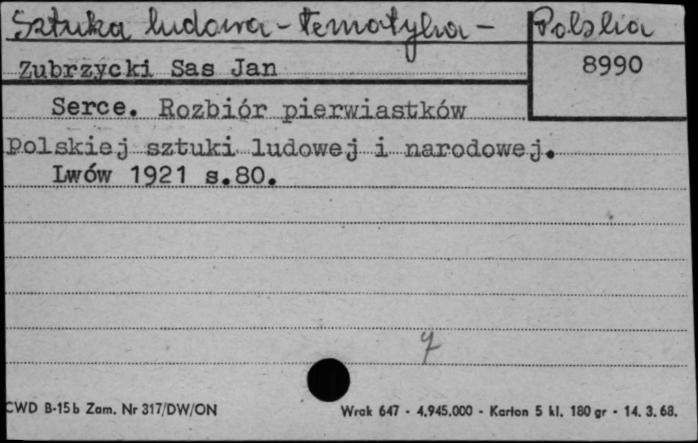 Sztuka ludowa - Tematyka - Polska
Zubrzycki Sas Jan
8990
Serce. Rozbiór pierwiastków
polskiej sztuki ludowej i narodowej.
Lwów 1921 s.80.
7
CWD B-15b Zam. Nr 317/DW/ON
Wrak 647 - 4.945.000 - Karton 5 kl. 180 gr - 14. 3. 68.